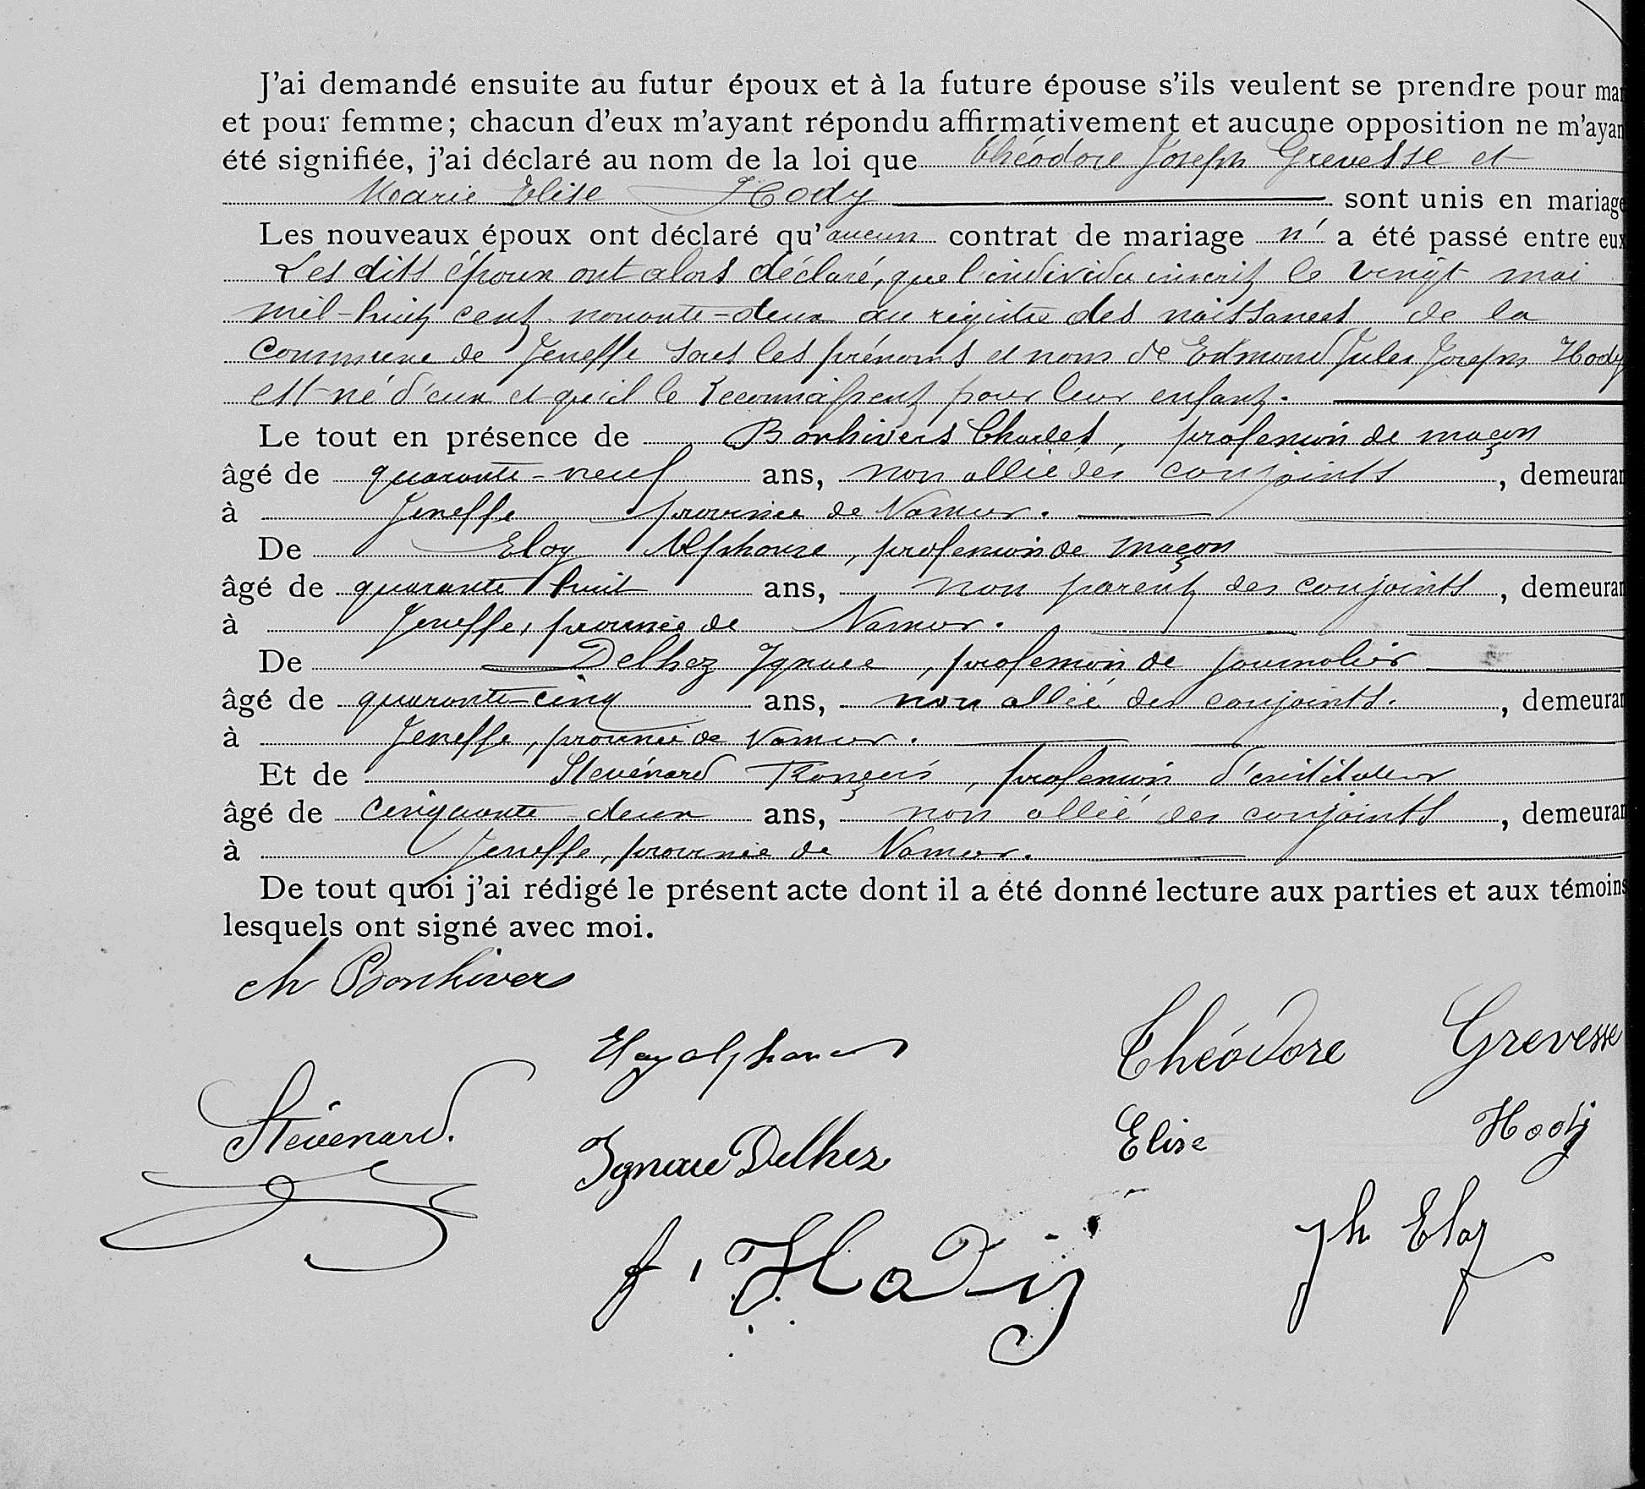 J'ai demandé ensuite au futur époux et à la future épouse s'ils veulent se prendre pour mar
et pour femme; chacun d'eux m'ayant répondu affirmativement et aucune opposition ne m'ayan
été signifiée, j'ai déclaré au nom de la loi que Théodore Joseph Grevesse et
Marie Elise Hody sont unis en mariage
Les nouveaux époux ont déclaré qu'aucun contrat de mariage n' a été passé entre eux
Les dits époux ont alors déclaré, que l'individu inscrit le vingt mai
mil-huit cent nonante-deux au registre des naissances de la
commune de Jeneffe sous les prénoms et nom de Edmond Jules Joseph Hody
est né d'eux et qu'il le reconnaissent pour leur enfant.
Le tout en présence de Bonhivers Charles, profession de maçon
âgé de quarante-neuf ans, non allié des conjoints, demeuran
à Jeneffe province de Namur.
De Eloy Alphonse, profession de maçon
âgé de quarante huit ans, non parent des conjoints, demeuran
à Jeneffe, province de Namur.
De Delhez Ignace, profession de journalier
âgé de quarante-cinq ans, non allié des conjoints., demeuran
à Jeneffe, province de Namur.
Et de Stevénard François, profession d'instituteur
âgé de cinquante deux ans, non allié des conjoints, demeuran
à Jeneffe, province de Namur.
De tout quoi j'ai rédigé le présent acte dont il a été donné lecture aux parties et aux témoins
lesquels ont signé avec moi.
Ch Bonhivers
Eloy alphonse Théodore Grevesse
Stévenard. Ignace Delhez Elise Hody
f. Hody Jh Eloy